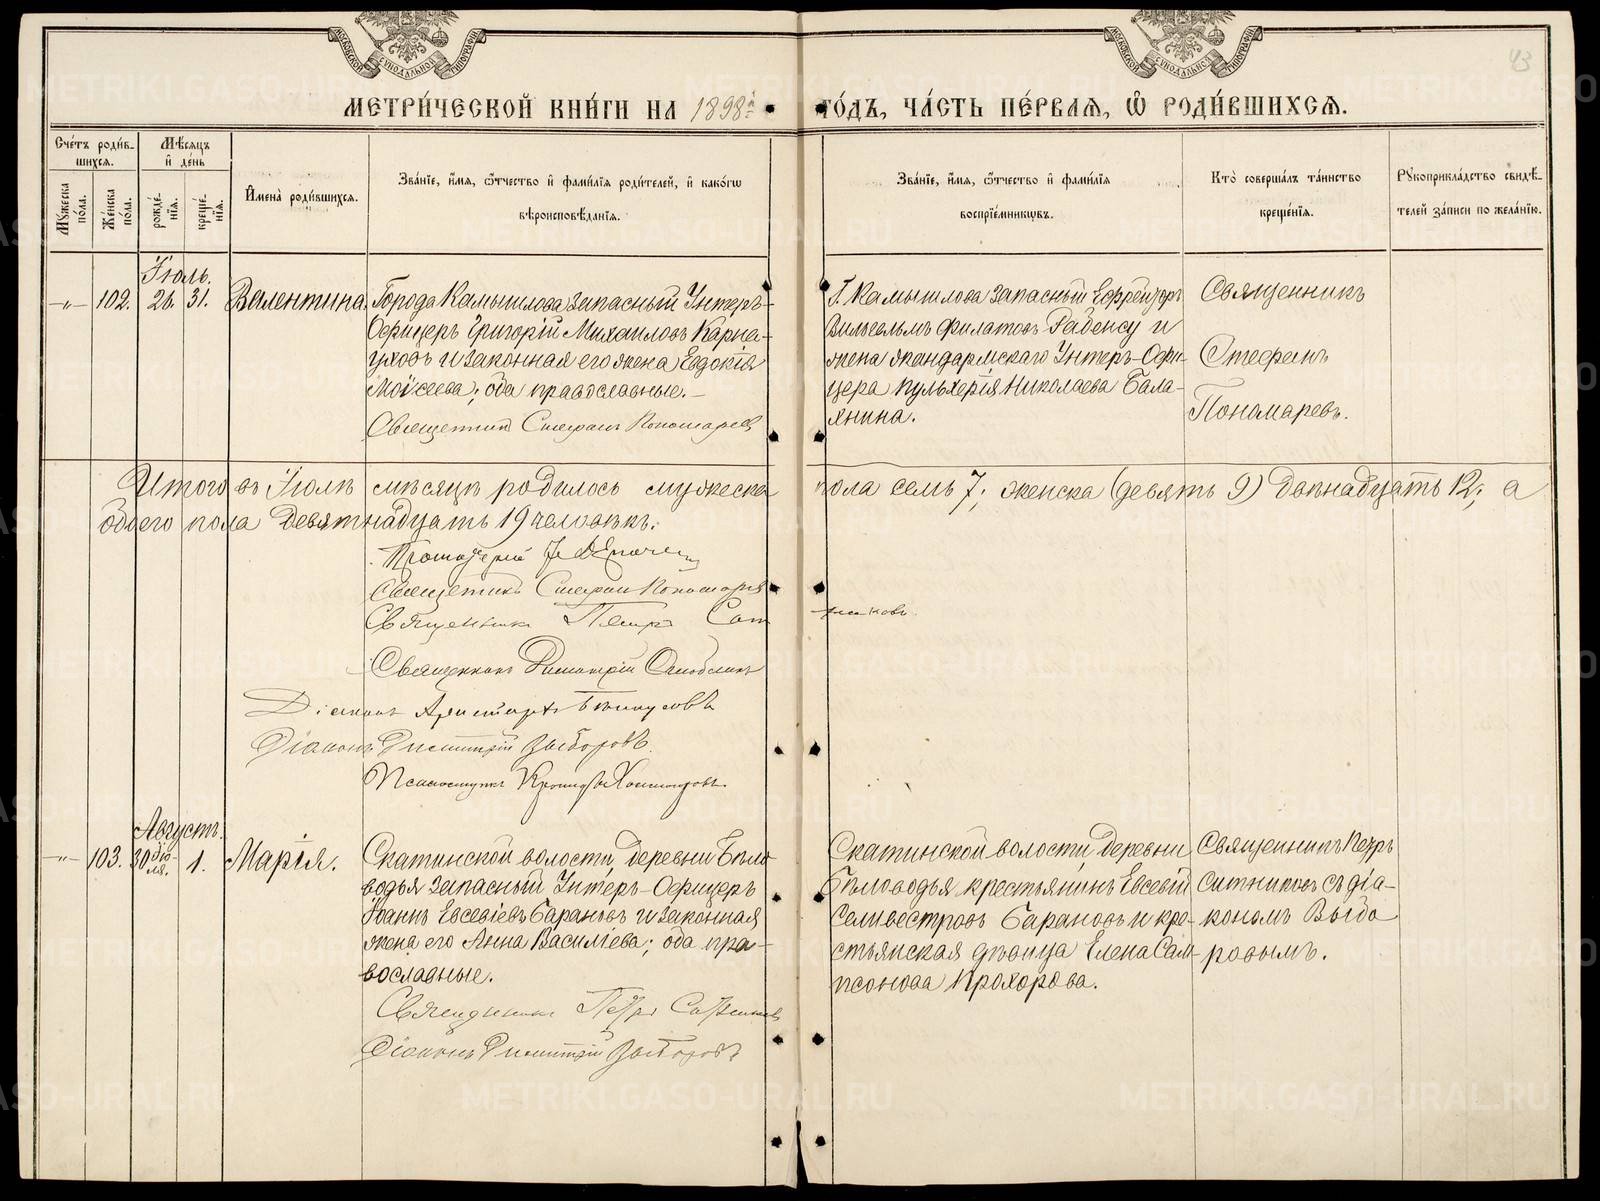 МЕТРИ́ЧЕСКОЙ КНИ́ГИ НА 1898й ГОДЪ, ЧА́СТЬ ПЕ́РВАЯ, Ѽ РОДИ́ВШИХСЯ.
43
Сче́тъ роди́в-
шихся.
Мѣ́сяцъ
и҆ де́нь
Мꙋ́жеска
пола.
Же́нска
по́ла.
рожде́-
нїя.
креще́-
нїя.
И҆мена̀ роди́вшихся.
Зва́нїе, и҆́мя, ѻ҆́тчество и҆ фами́лїя роди́телей, и҆ како́гѡ
вѣроисповѣ́данїя.
Зва́нїе, и҆́мя, ѻ҆́тчество и҆ фами́лїя
воспрїе́мникѡвъ.
Кто̀ соверша́лъ та́инство
креще́нїя.
Рꙋкоприкла́дство свидѣ́-
телей за́писи по жела́нїю.
Іюль.
-„- 102. 26. 31. Валентина.
Города Камышлова запасный Унтеръ-
Офицеръ Григорій Михаиловъ Карна-
уховъ и законная его жена Евдокія
Моѵсеева; оба православные. –
Священникъ Стефанъ Пономаревъ
Г. Камышлова запасный Ефрейторъ
Вильгельмъ Филатовъ Рабенсу и
жена жандармскаго Унтеръ-Офи-
цера Пульхерія Николаева Бала-
янина.
Священникъ
Стефанъ
Пономаревъ.
Итого въ Іюлѣ мѣсяцѣ родилось мужеска пола семь 7; женска (девять 9) двѣнадцать 12; а
обоего пола девятнадцать 19 человѣкъ.
Протоіерей
Священникъ Стефанъ Пономаревъ
Священникъ Петръ Ситниковъ.
Священникъ Димитрій
Діаконъ Аристархъ
Діаконъ Димитрій Выборовъ.
Псаломщикъ
Августъ.
-„- 103. 30 Іюля. 1. Марія.
Скатинской волости, деревни Бѣло-
водья запасный Унтеръ-Офицеръ
Іоаннъ Евсевіевъ Барановъ и законная
жена его Анна Василіева; оба пра-
вославные.
Священникъ Петръ Ситниковъ
Діаконъ Димитрій Выборовъ
Скатинской волости, деревни
Бѣловодья крестьянинъ Евсевій
Селивестровъ Барановъ и кре-
стьянская дѣвица Елена Сам-
псонова Прохорова.
Священникъ Петръ
Ситниковъ съ діа-
кономъ Выбо
ровымъ.